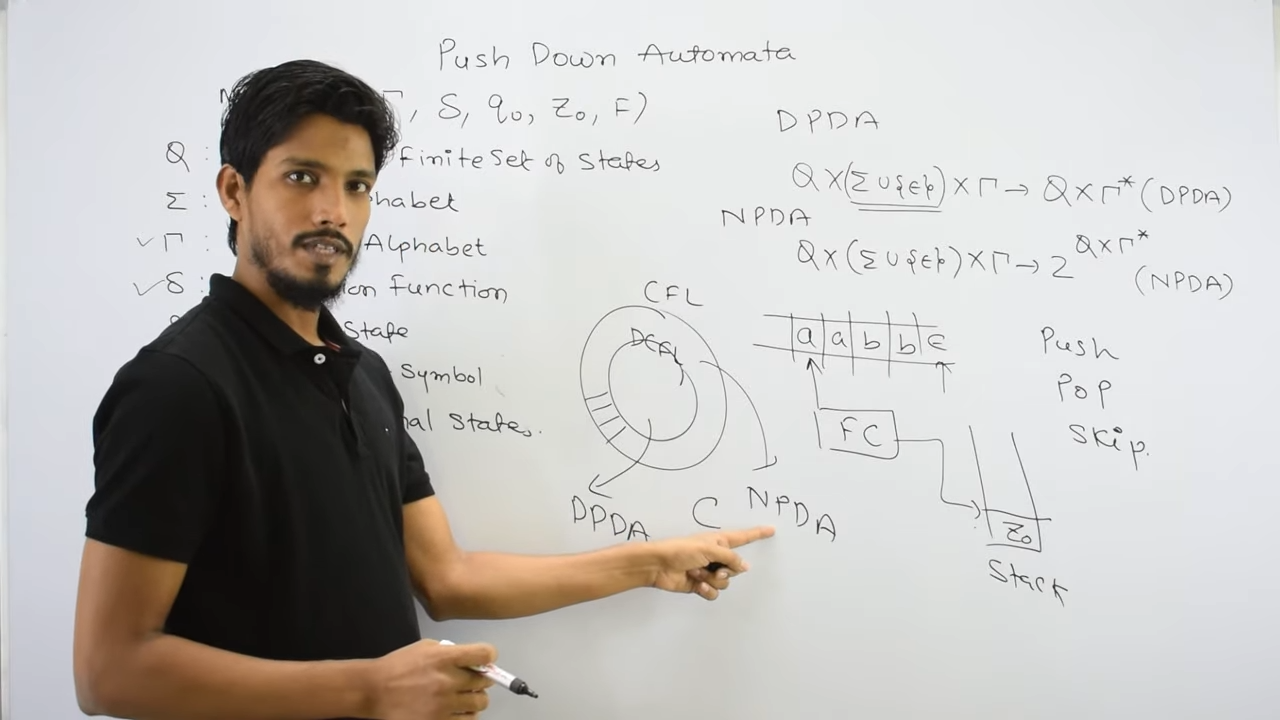 Push Down Automata
, δ, q0, Z0, F)
Q : finite set of States
Σ : phabet
✓Γ : Alphabet
✓δ : ion function
State
Symbol
nal States.
DPDA
Q×(Σ∪{ϵ})×Γ→ Q×Γ* (DPDA)
NPDA
Q×(Σ∪{ϵ})×Γ→2^Q×Γ*
(NPDA)
CFL
DCFL
DPDA ⊂ NPDA
a a b b ϵ
FC
Z0
Stack
Push
Pop
Skip.